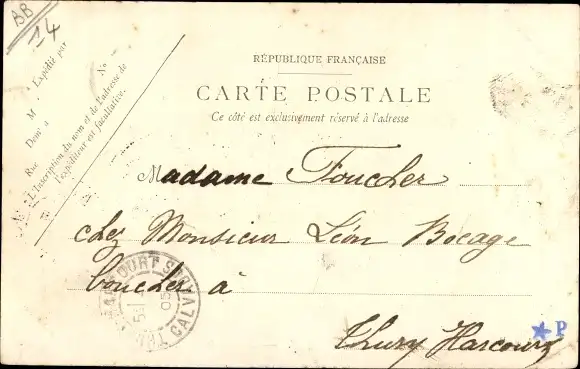 AB
14
Expédié par
M
Demt à
Rue
No
L'Inscription du nom et de l'adresse de
l'expéditeur est facultative.
RÉPUBLIQUE FRANÇAISE
CARTE POSTALE
Ce côté est exclusivement réservé à l'adresse
Madame Foucher
chez Monsieur Léon Bocage
boucher à
Thury Harcourt
COURT
CALV
05
P